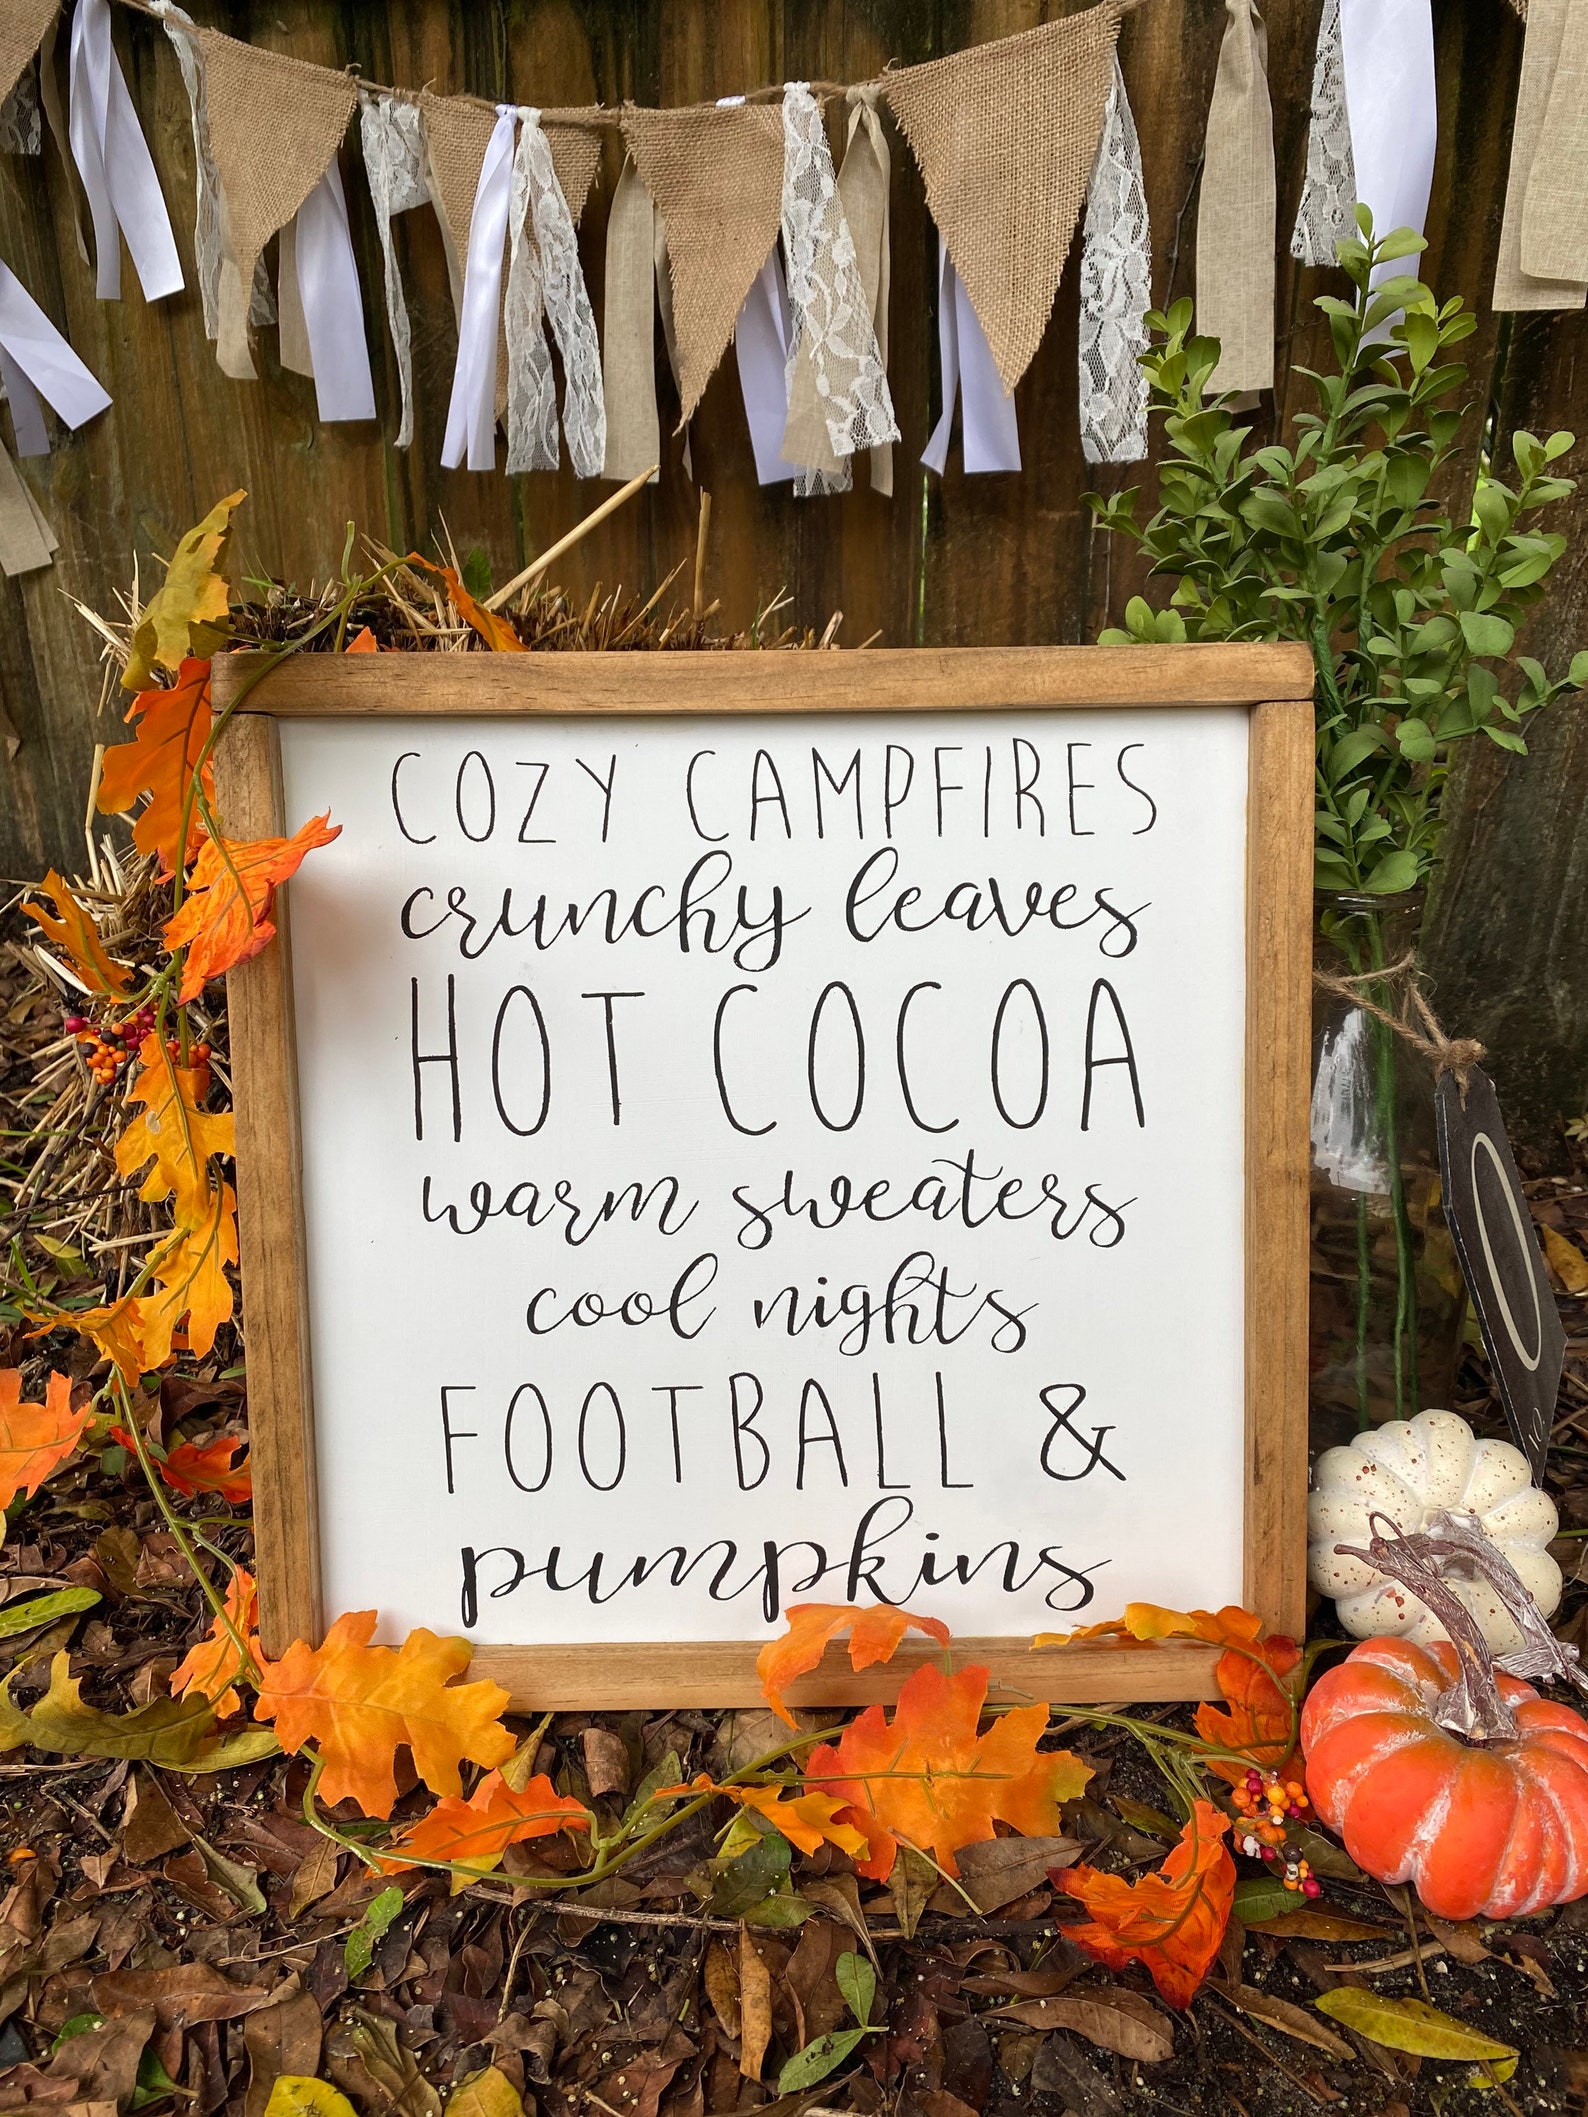 COZY CAMPFIRES
crunchy leaves
HOT COCOA
warm sweaters
cool nights
FOOTBALL &
pumpkins